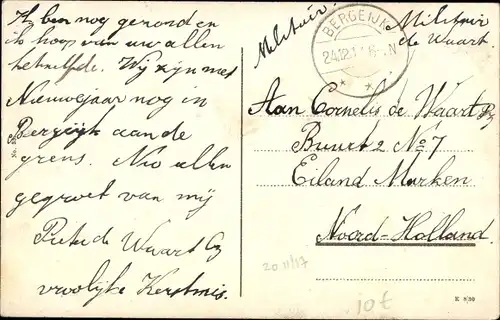 Ik ben nog gezond en
ik hoop van uw allen
hetzelfde. Wij zijn met
Nieuwejaar nog in
Bergeijk aan de
grens. Nu allen
gegroet van mij
Piet de Waart Cz
vroolijke Kerstmis.
Militair.
BERGEIJK
24.12.1 6-.N
Militair
de Waart.
Aan Cornelis de Waart Pz
Buurt 2 No 7
Eiland Marken
Noord-Holland.
20 11/17
10€